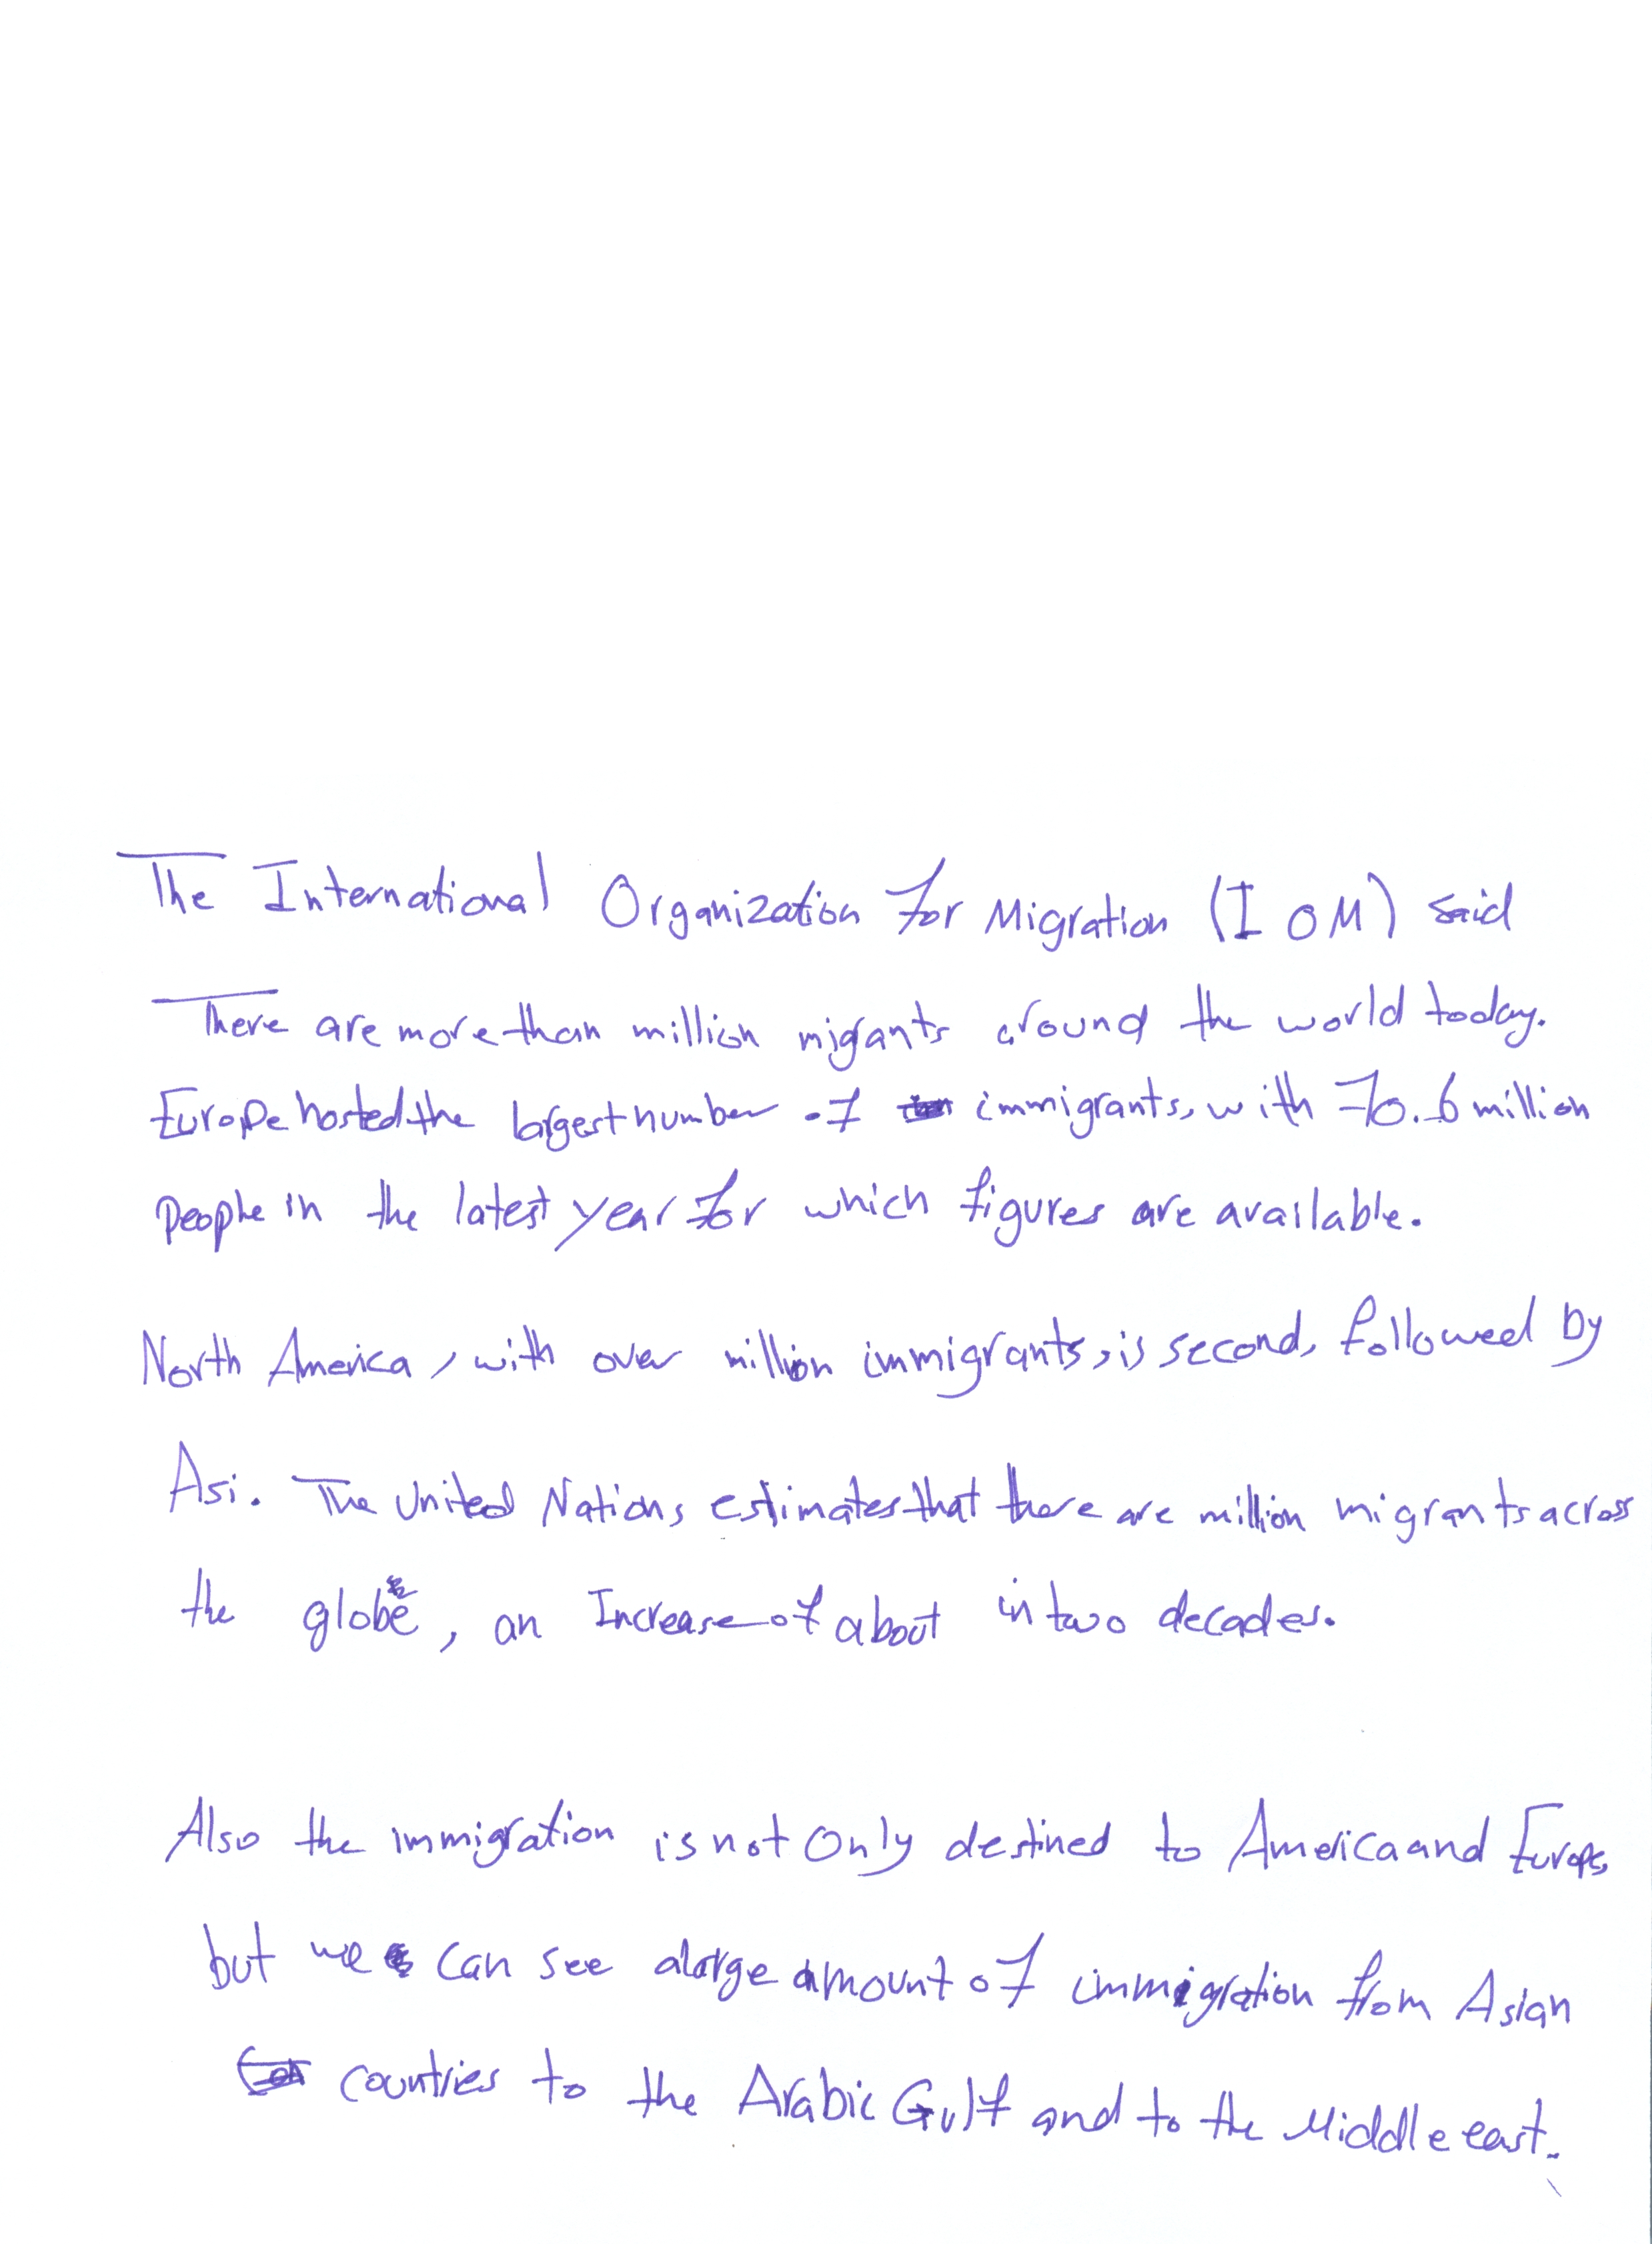 The International Organization For Migration (IOM) said
There are more than million migants around the world today.
Europe hosted the largest number of immigrants, with 70.6 million
people in the latest year for which figures are available.
North America, with over million immigrants, is second, followed by
Asi. The United Nations estimates that there are million migrants across
the globe, an Increase of about in two decades.
Also the immigration is not Only destined to America and Europe,
but we can see a large amount of immigration from Asian
countries to the Arabic Gulf and to the Middle east.